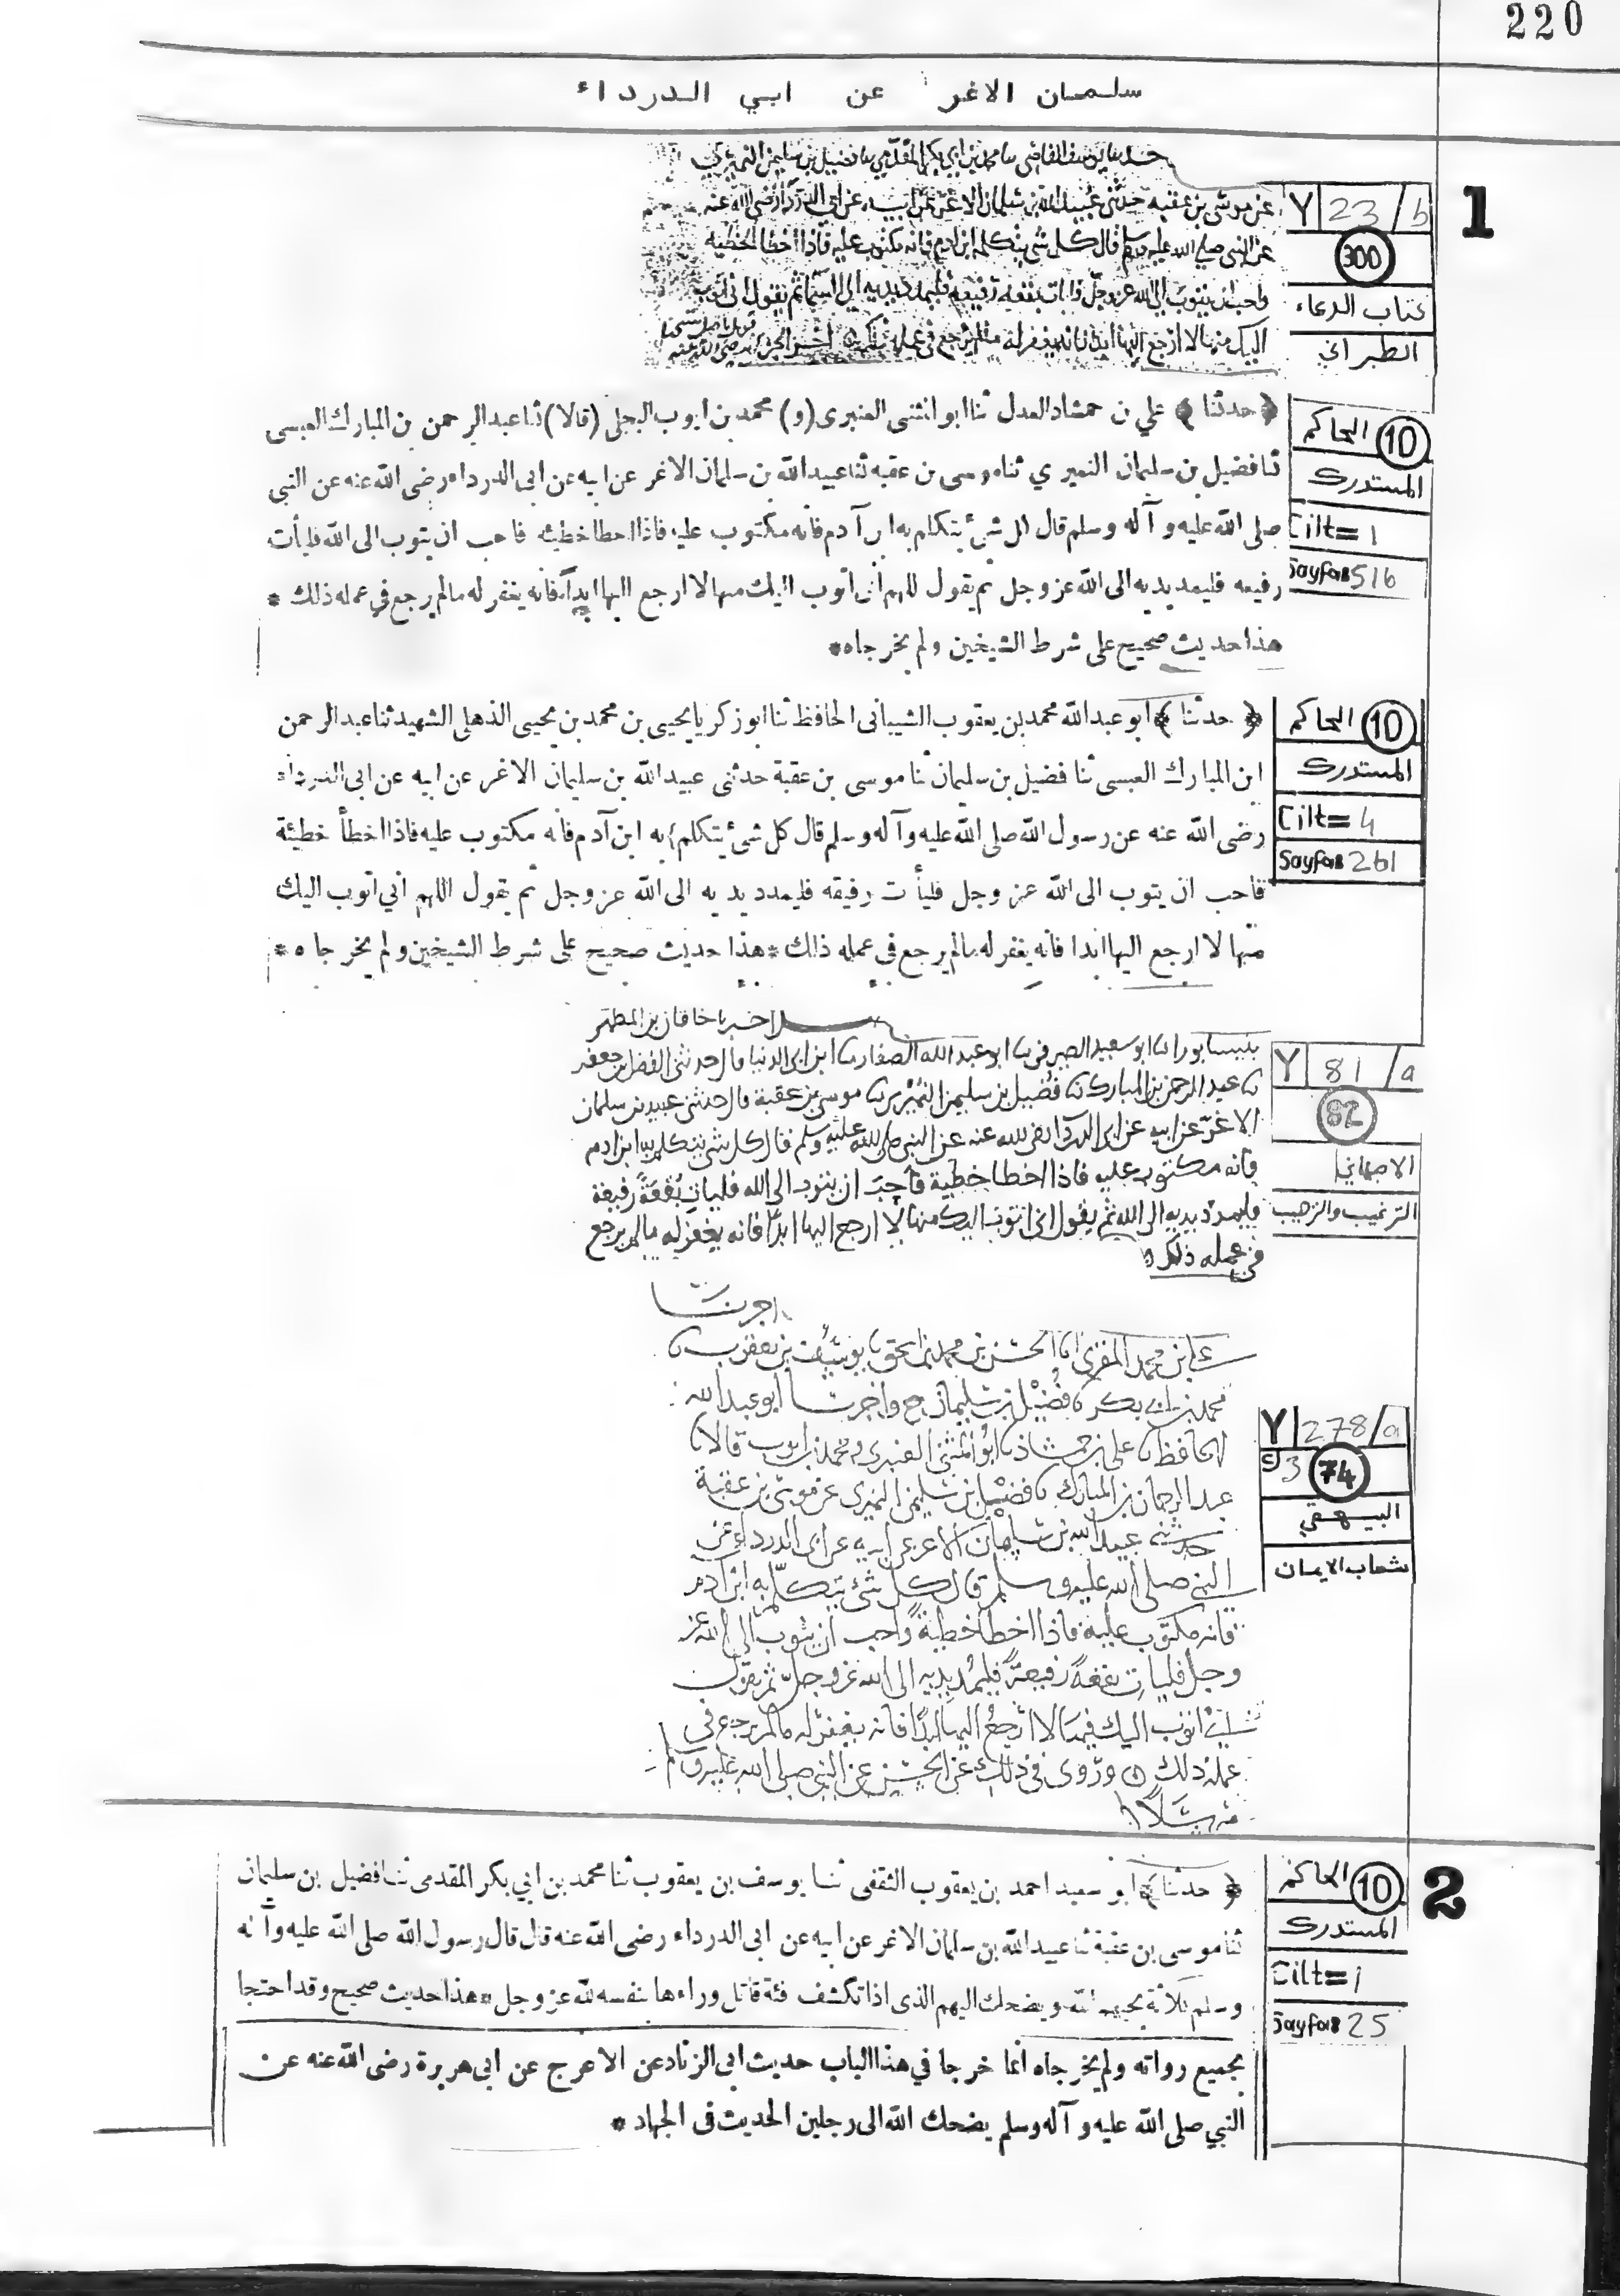 220
سلمان الاغر عن ابي الدرداء
1
Y 23/b
300
كتاب الدعاء
الطبراني
حدثنا يوسف القاضي سا محمد بن ابي بكر المقدمي سا فضيل بن سليمن النميري
عن موسى بن عقبة حدثني عبيد الله بن سلمان الاغر عن ابيه عن ابي الدرداء رضي الله عنه
عن النبي صلى الله عليه وسلم قال كل شي يتكلم ابن ادم فانه مكتوب عليه فاذا اخطا الخطية
واحب ان يتوب الى الله عز وجل فليمدد يديه الى السما ثم يقول اني اتوب
اليك منها لا ارجع اليها ابدا فانه يغفر له مالم يرجع في عمله ذلك
10 الحاكم
المستدرك
Cilt=1
Sayfa=516
﴿حدثنا﴾ علي بن حمشاد العدل ثنا ابو المثنى العنبرى (و) محمد بن ايوب البجلى (قالا) ثنا عبد الرحمن بن المبارك العبسى
ثنا فضيل بن سليمان النميري ثنا موسى بن عقبه ثنا عبيد الله بن سلمان الاغر عن ابيه عن ابى الدرداء رضى الله عنه عن النبي
صلى الله عليه وآله وسلم قال كل شئ يتكلم به ابن آدم فانه مكتوب عليه فاذا اخطا خطيئة فاحب ان يتوب الى الله فليأت
رفيعه فليمد يديه الى الله عز وجل ثم يقول اللهم انى اتوب اليك منها لا ارجع اليها ابدآ فانه يغفر له مالم يرجع في عمله ذلك *
هذا حديث صحيح على شرط الشيخين ولم يخرجاه *
10 الحاكم
المستدرك
Cilt=4
Sayfa=261
﴿حدثنا﴾ ابو عبد الله محمد بن يعقوب الشيبانى الحافظ ثنا ابو زكريا يحيى بن محمد بن يحيى الذهلى الشهيد ثنا عبد الرحمن
ابن المبارك العبسى ثنا فضيل بن سليمان ثنا موسى بن عقبة حدثنى عبيد الله بن سليمان الاغر عن ابيه عن ابى الدرداء
رضى الله عنه عن رسول الله صلى الله عليه وآله وسلم قال كل شئ يتكلم به ابن آدم فانه مكتوب عليه فاذا اخطأ خطيئة
فاحب ان يتوب الى الله عز وجل فليأت رفيقه فليمدد يديه الى الله عز وجل ثم يقول اللهم اني اتوب اليك
منها لا ارجع اليها ابدا فانه يغفر له مالم يرجع فى عمله ذلك * هذا حديث صحيح على شرط الشيخين ولم يخرجاه *
Y 81/a
82
الاصبهاني
الترغيب والترهيب
اخبرنا خاقان بن المطهر
بنيسابور انا ابو سعيد الصيرفي نا ابو عبد الله الصفار نا ابن ابي الدنيا قال حدثني الفضل بن جعفر
نا عبد الرحمن بن المبارك نا فضيل بن سليمن النميري نا موسى بن عقبة قال حدثني عبيد بن سلمان
الاغر عن ابيه عن ابي الدرداء رضي الله عنه عن النبي صلى الله عليه وسلم قال كل شي يتكلم به ابن ادم
فانه مكتوب عليه فاذا اخطا خطية فاحب ان يتوب الى الله فليات بقعة رفيعة
فليمدد يديه الى الله ثم يقول اني اتوب اليك منها لا ارجع اليها ابدا فانه يغفر له مالم يرجع
في عمله ذلك
Y 278/a
3 74
البيهقي
شعاب الايمان
اخبرنا
علي بن محمد المقرئ انا الحسن بن محمد بن اسحق نا يوسف بن يعقوب نا
محمد بن ابي بكر نا فضيل بن سليمان ح واخبرنا ابو عبد الله
الحافظ نا علي بن حمشاذ نا ابو المثنى العنبري ومحمد بن ايوب قالا نا
عبد الرحمان بن المبارك نا فضيل بن سليمن النميري عن موسى بن عقبة
حدثني عبيد الله بن سلمان الاغر عن ابيه عن ابي الدرداء عن
النبي صلى الله عليه وسلم قال كل شئ يتكلم به ابن ادم
فانه مكتوب عليه فاذا اخطا خطية واحب ان يتوب الى الله عز
وجل فليات بقعة رفيعة فليمد يديه الى الله عز وجل ثم يقول
اني اتوب اليك فيها لا ارجع اليها ابدا فانه يغفر له مالم يرجع في
عمله ذلك وروى في ذلك عن الحسن عن النبي صلى الله عليه وسلم
مرسلا
2
10 الحاكم
المستدرك
Cilt=1
Sayfa=25
﴿حدثنا﴾ ابو سعيد احمد بن يعقوب الثقفى ثنا يوسف بن يعقوب ثنا محمد بن ابي بكر المقدمى ثنا فضيل بن سليمان
ثنا موسى بن عقبة ثنا عبيد الله بن سلمان الاغر عن ابيه عن ابى الدرداء رضى الله عنه قال قال رسول الله صلى الله عليه وآله
وسلم ثلاثة يحبهم الله ويضحك اليهم الذى اذا تكشف فئة قاتل وراءها بنفسه لله عز وجل * هذا حديث صحيح وقد احتجا
بجميع رواته ولم يخرجاه انما خرجا في هذا الباب حديث ابى الزناد عن الاعرج عن ابى هريرة رضى الله عنه عن
النبي صلى الله عليه وآله وسلم يضحك الله الى رجلين الحديث فى الجهاد *